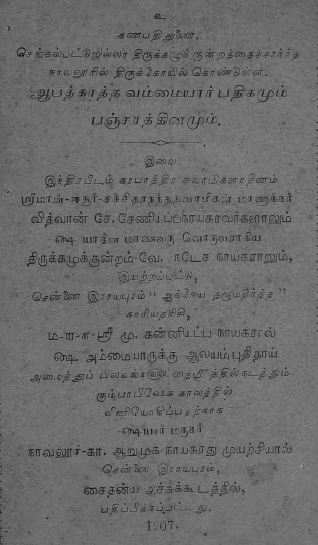 உ
கணபதிதுணை.
செங்கல்பட்டுஜில்லா திருக்கழுக்குன்றத்தைச்சார்ந்த
நாவலூரில் திருக்கோயில் கொண்டுள்ள
ஆபத்காத்த வம்மையார் பதிகமும்
பஞ்சரத்தினமும்.
இவை
இந்திரபீடம் கரபாத்திர சுவாமிகளாதீனம்
ஸ்ரீமான்-ஈசூர்-சச்சிதாநந்தசுவாமிகள் மாணாக்கர்
வித்வான் சே. சேணியப்பநாயகரவர்களாலும்
ஷை யாரின் மாணவரு ளொருவராகிய
திருக்கழுக்குன்றம்-வே. நடேச நாயகராலும்,
இயற்றப்பட்டு,
சென்னை இராயபுரம் "ஆக்நேய தருமதீர்த்த"
காரியதரிசி,
ம-ா-ா-ஸ்ரீ மு. கன்னியப்ப நாயகரால்
ஷை அம்மையாருக்கு ஆலயம்புதிதாய்
அமைத்துப் தைமீத்தில்நடத்தும்
கும்பாபிஷேக காலத்தில்
வினியோகிப்பதற்காக
ஷையார் மருகர்
நாவலூர்-கா. ஆறுமுக நாயகரது முயற்சியால்
சென்னை இராயபுரம்,
சைதன்ய அச்சுக்கூடத்தில்,
பதிப்பிக்கப்பட்டது.
1907.